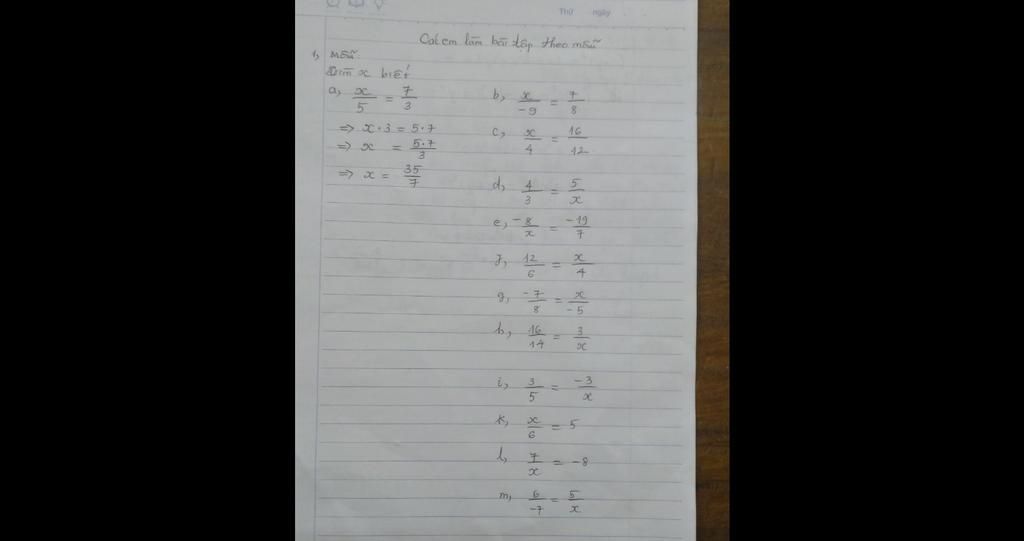 Thứ ngày
Các em làm bài tập theo mẫu
1, Mẫu:
Tìm x biết
a, x/5 = 7/3
=> x.3 = 5.7
=> x = 5.7/3
=> x = 35/7
b, x/-9 = 7/8
c, x/4 = 16/12
d, 4/3 = 5/x
e, -8/x = -19/7
f, 12/6 = x/4
g, -7/8 = x/-5
h, 16/14 = 3/x
i, 3/5 = -3/x
k, x/6 = 5
l, 7/x = -8
m, 6/-7 = 5/x